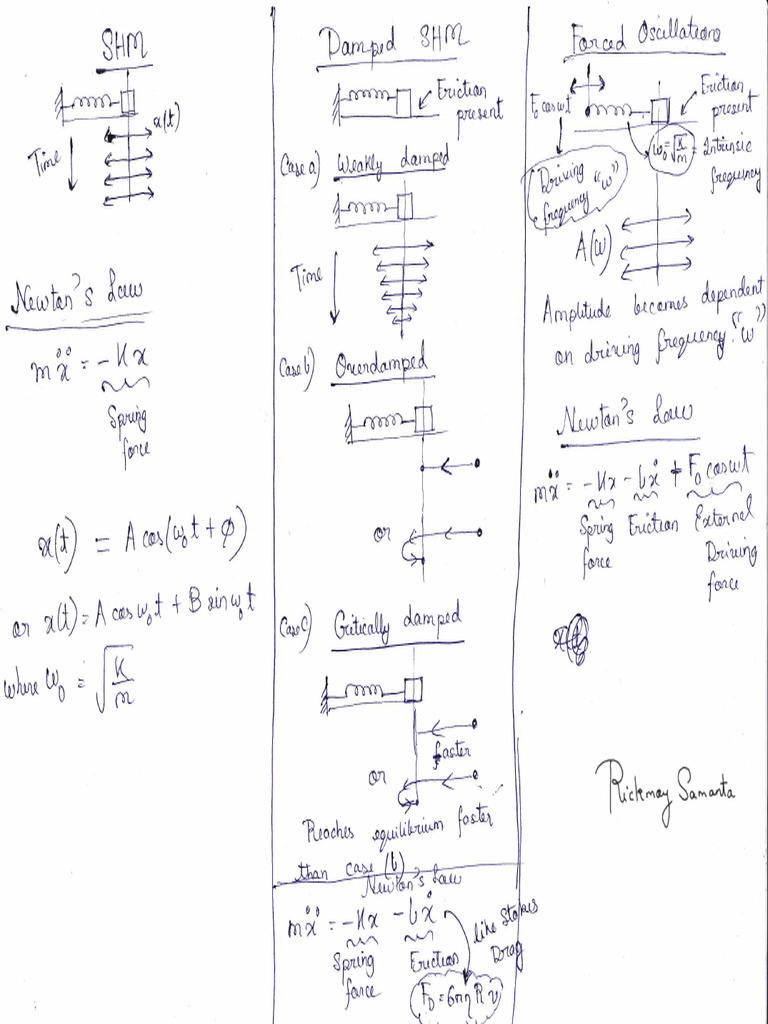 SHM
x(t)
Time
Newton's Law
mẍ = -Kx
Spring
force
x(t) = A cos(ω₀t + φ)
or x(t) = A cos ω₀t + B sin ω₀t
where ω₀ = √(K/m)
Damped SHM
Friction
present
Case a) Weakly damped
Time
Case b) Overdamped
or
Case c) Critically damped
faster
or
Reaches equilibrium faster
than case (b)
Newton's Law
mẍ = -Kx - bẋ
Spring
force
Friction
like Stokes
Drag
F_D = 6πη R v
Forced Oscillations
F₀ cos ωt
Friction
present
ω₀ = √(K/m) = Intrinsic
frequency
Driving
frequency "ω"
A(ω)
Amplitude becomes dependent
on driving frequency "ω"
Newton's Law
mẍ = -Kx - bẋ + F₀ cos ωt
Spring Friction External
force Driving
force
Rickmoy Samanta